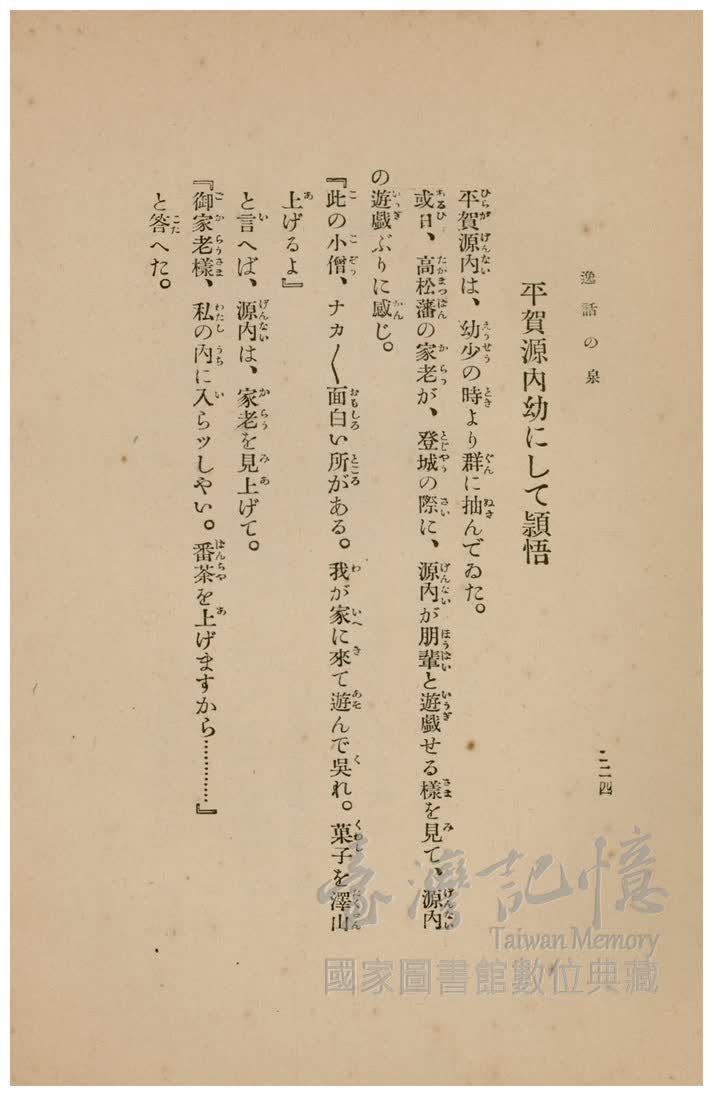 逸話の泉
二二四
平賀源內幼にして頴悟
平賀源內は、幼少の時より群に抽んでゐた。
或日、高松藩の家老が、登城の際に、源內が朋輩と遊戯せる樣を見て、源內
の遊戯ぶりに感じ。
『此の小僧、ナカ〱面白い所がある。我が家に來て遊んで吳れ。菓子を澤山
上げるよ』
と言へば、源內は、家老を見上げて。
『御家老樣、私の內に入らッしやい。番茶を上げますから…………』
と答へた。
臺灣記憶
Taiwan Memory
國家圖書館數位典藏